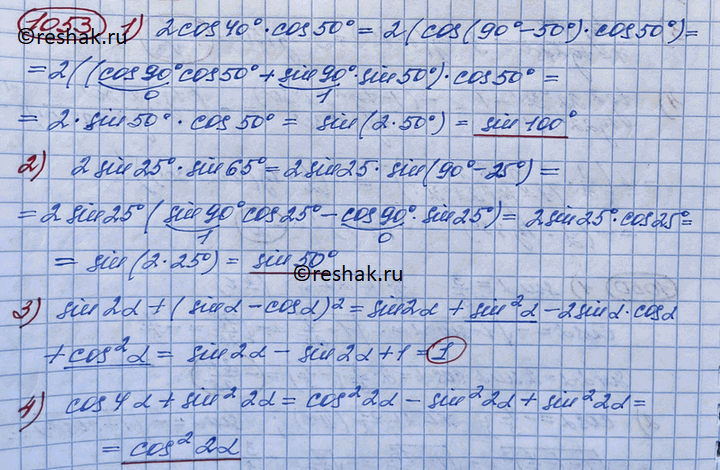 1053 1) 2cos40°·cos50° = 2(cos(90°-50°)·cos50°)=
©reshak.ru
= 2((cos90°cos50°+sin90°·sin50°)·cos50° =
0 1
= 2·sin50°·cos50° = sin(2·50°) = sin100°
2) 2sin25°·sin65° = 2sin25·sin(90°-25°) =
= 2sin25°(sin90°cos25°-cos90°·sin25°) = 2sin25°·cos25°=
1 0
= sin(2·25°) = sin50°
©reshak.ru
3) sin2α+(sinα-cosα)² = sin2α+sin²α-2sinα·cosα
+cos²α = sin2α-sin2α+1=1
4) cos4α+sin²2α = cos²2α-sin²2α+sin²2α=
= cos²2α